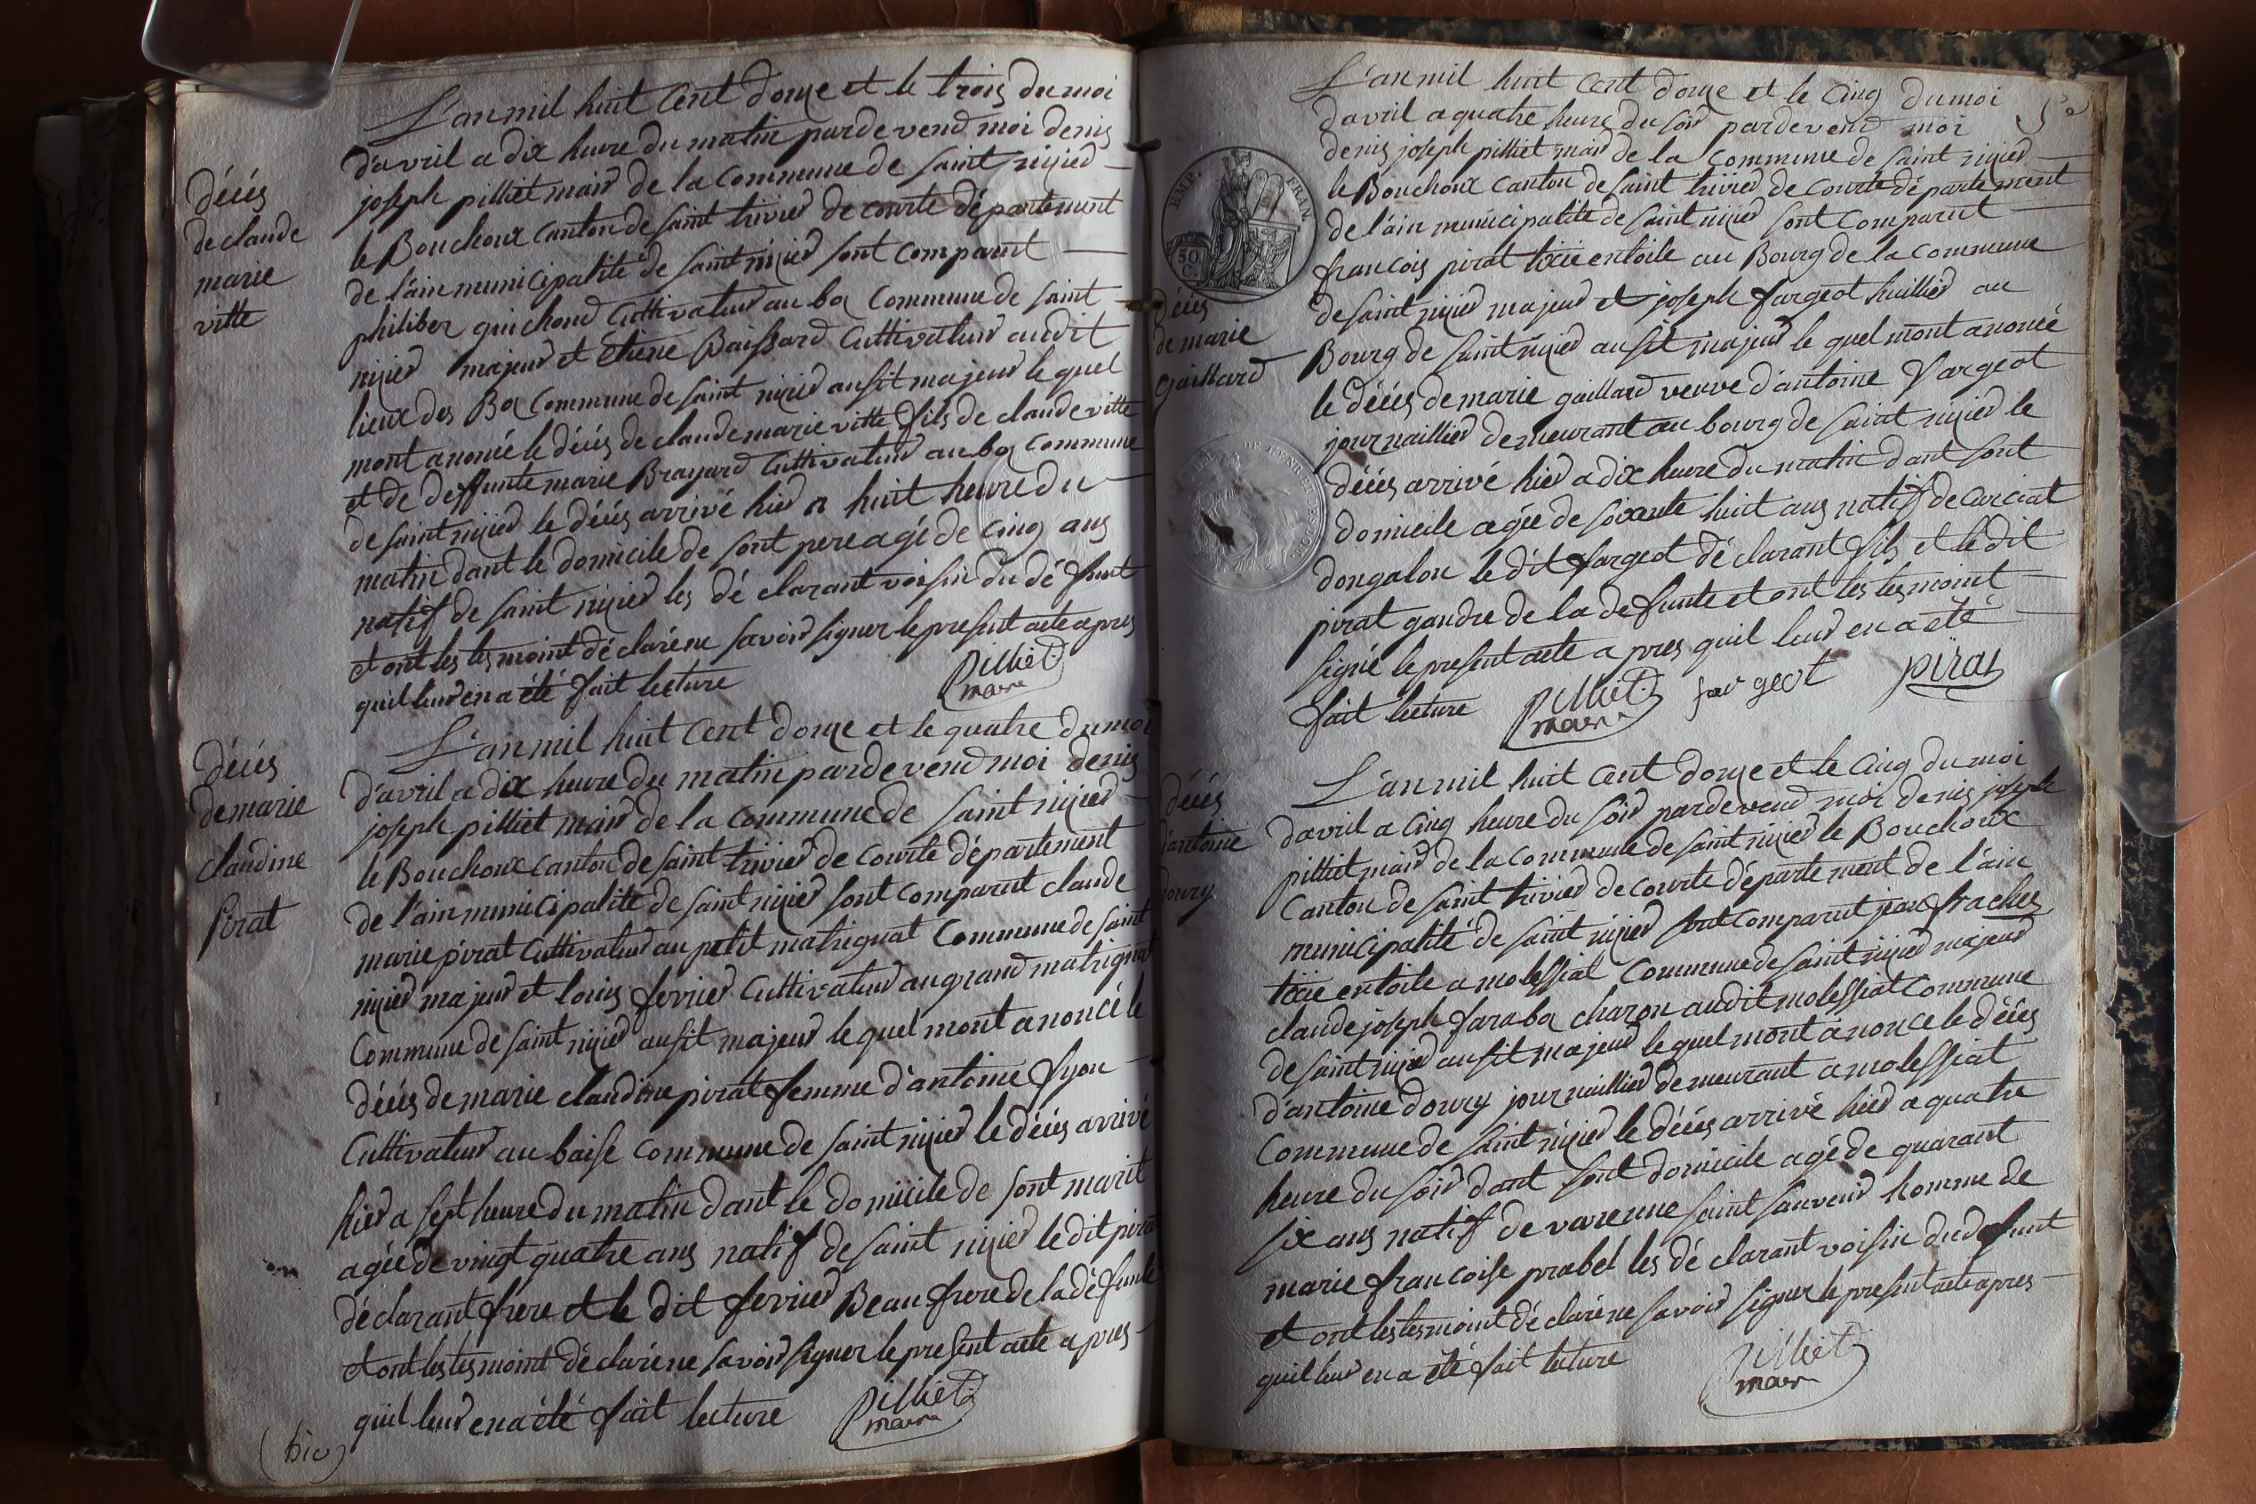 L'an mil huit Cent douze et le trois du moi
d'avril a dix heure du matin pardevend moi denis
joseph pilliet mair de la commune de saint nizier
le Bouchoux canton de saint trivier de courte département
de l'ain municipalité de saint nizier sont comparut
philiber guichond Cultivateur au boz commune de saint
nizier majeur et étiene Baissard Cultivateur audit
lieux des Boz Commune de saint nizier ausit majeur le quel
mont anoncé le décés de claude marie vitte fils de claude vitte
et de deffunte marie Brayard Cultivateur au boz commune
de saint nizier le décés arrivé hier a huit heure du
matin dant le domicile de sont pere agé de Cinq ans
natif de saint nizier les dé clarant voisin du dé funt
et ont les tesmoint dé claré ne savoir signer le present acte apres
quil leur en a été fait lecture
Pilliet
maire
décés
de claude
marie
vitte
L'an mil huit Cent douze et le quatre du moi
d'avril a dix heure du matin pardevend moi denis
joseph pilliet mair de la commune de saint nizier
le Bouchoux canton de saint trivier de courte département
de l'ain municipalité de saint nizier sont comparut claude
marie pirat Cultivateur au petit matrignat Commune de saint
nizier majeur et louis fevrier Cultivateur au grand matrignat
Commune de saint nizier ausit majeur le quel mont anoncé le
décés de marie claudine pirat femme d'antoine fyon
Cultivateur au baise commune de saint nizier le décés arrivé
hier a sept heure du matin dant le domicile de sont marit
agée de vingt quatre ans natif de saint nizier le dit pirat
déclarant frere et le dit fevrier Beau frere de la dé funte
et ont les tesmoint dé claré ne savoir signer le present acte apres
quil leur en a été fait lecture
Pilliet
maire
décés
de marie
claudine
Pirat
(bis)
L'an mil huit Cent douze et le Cinq du moi
d'avril a quatre heure du soir pardevend moi
denis joseph pilliet mair de la Commune de saint nizier
le Bouchoux Canton de saint trivier de Courte département
de l'ain municipalité de saint nizier sont Comparut
francois pirat tixié en toile au Bourg de la commune
de saint nizier majeur et joseph fargeot huillier au
Bourg de saint nizier ausit majeur le quel mont anoncé
le décés de marie gaillard veuve d'antoine Vargeot
journaillier demeurant au bourg de saint nizier le
décés arrivé hier a dix heure du matin dant sont
domicile agée de soixante huit ans natif de Curciat
dongalon le dit fargeot dé clarant fils et le dit
pirat gandre de la de funte et ont les tesmoint
signé le present acte a pres quil leur en a été
fait lecture
Pilliet
maire
fargeot
pirat
EMP. FRAN.
50
C.
décés
de marie
Gaillard
L'an mil huit Cent douze et le Cinq du moi
d'avril a Cinq heure du soir pardevend moi denis joseph
pilliet mair de la commune de saint nizier le Bouchoux
Canton de saint trivier de courte département de l'ain
municipalité de saint nizier sont Comparut jean frachet
tixié en toile a molessiat Commune de saint nizier majeur
claude joseph faraboz charon audit molessiat Commune
de saint nizier ausit majeur le quel mont anoncé le décés
d'antoine doury journaillier demeurant a molessiat
Commune de saint nizier le décés arrivé hier a quatre
heure du soir dant sont domicile agé de quarant
six ans natif de varenne saint sauveur homme de
marie francoise prabel les dé clarant voisin du defunt
et ont les tesmoint dé claré ne savoir signer le present acte apres
quil leur en a été fait lecture
Pilliet
maire
décés
d'antoine
doury